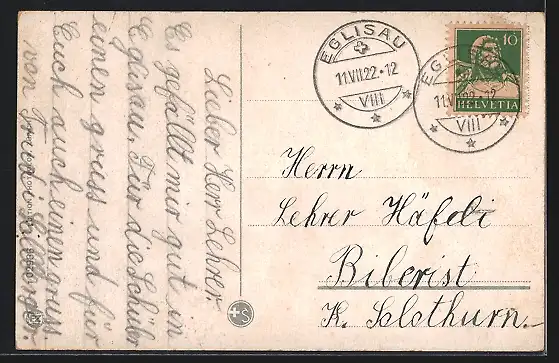 Lieber Herr Lehrer.
Es gefällt mir gut in
Eglisau. Für die Schüler
einen gruss und für
Euch auch einen gruss.
von Friedi
EGLISAU
11.VII.22.-12
VIII
EGLISAU
11.VII.22.-12
VIII
10
HELVETIA
Herrn
Lehrer Häfeli
Biberist
K. Solothurn.
S